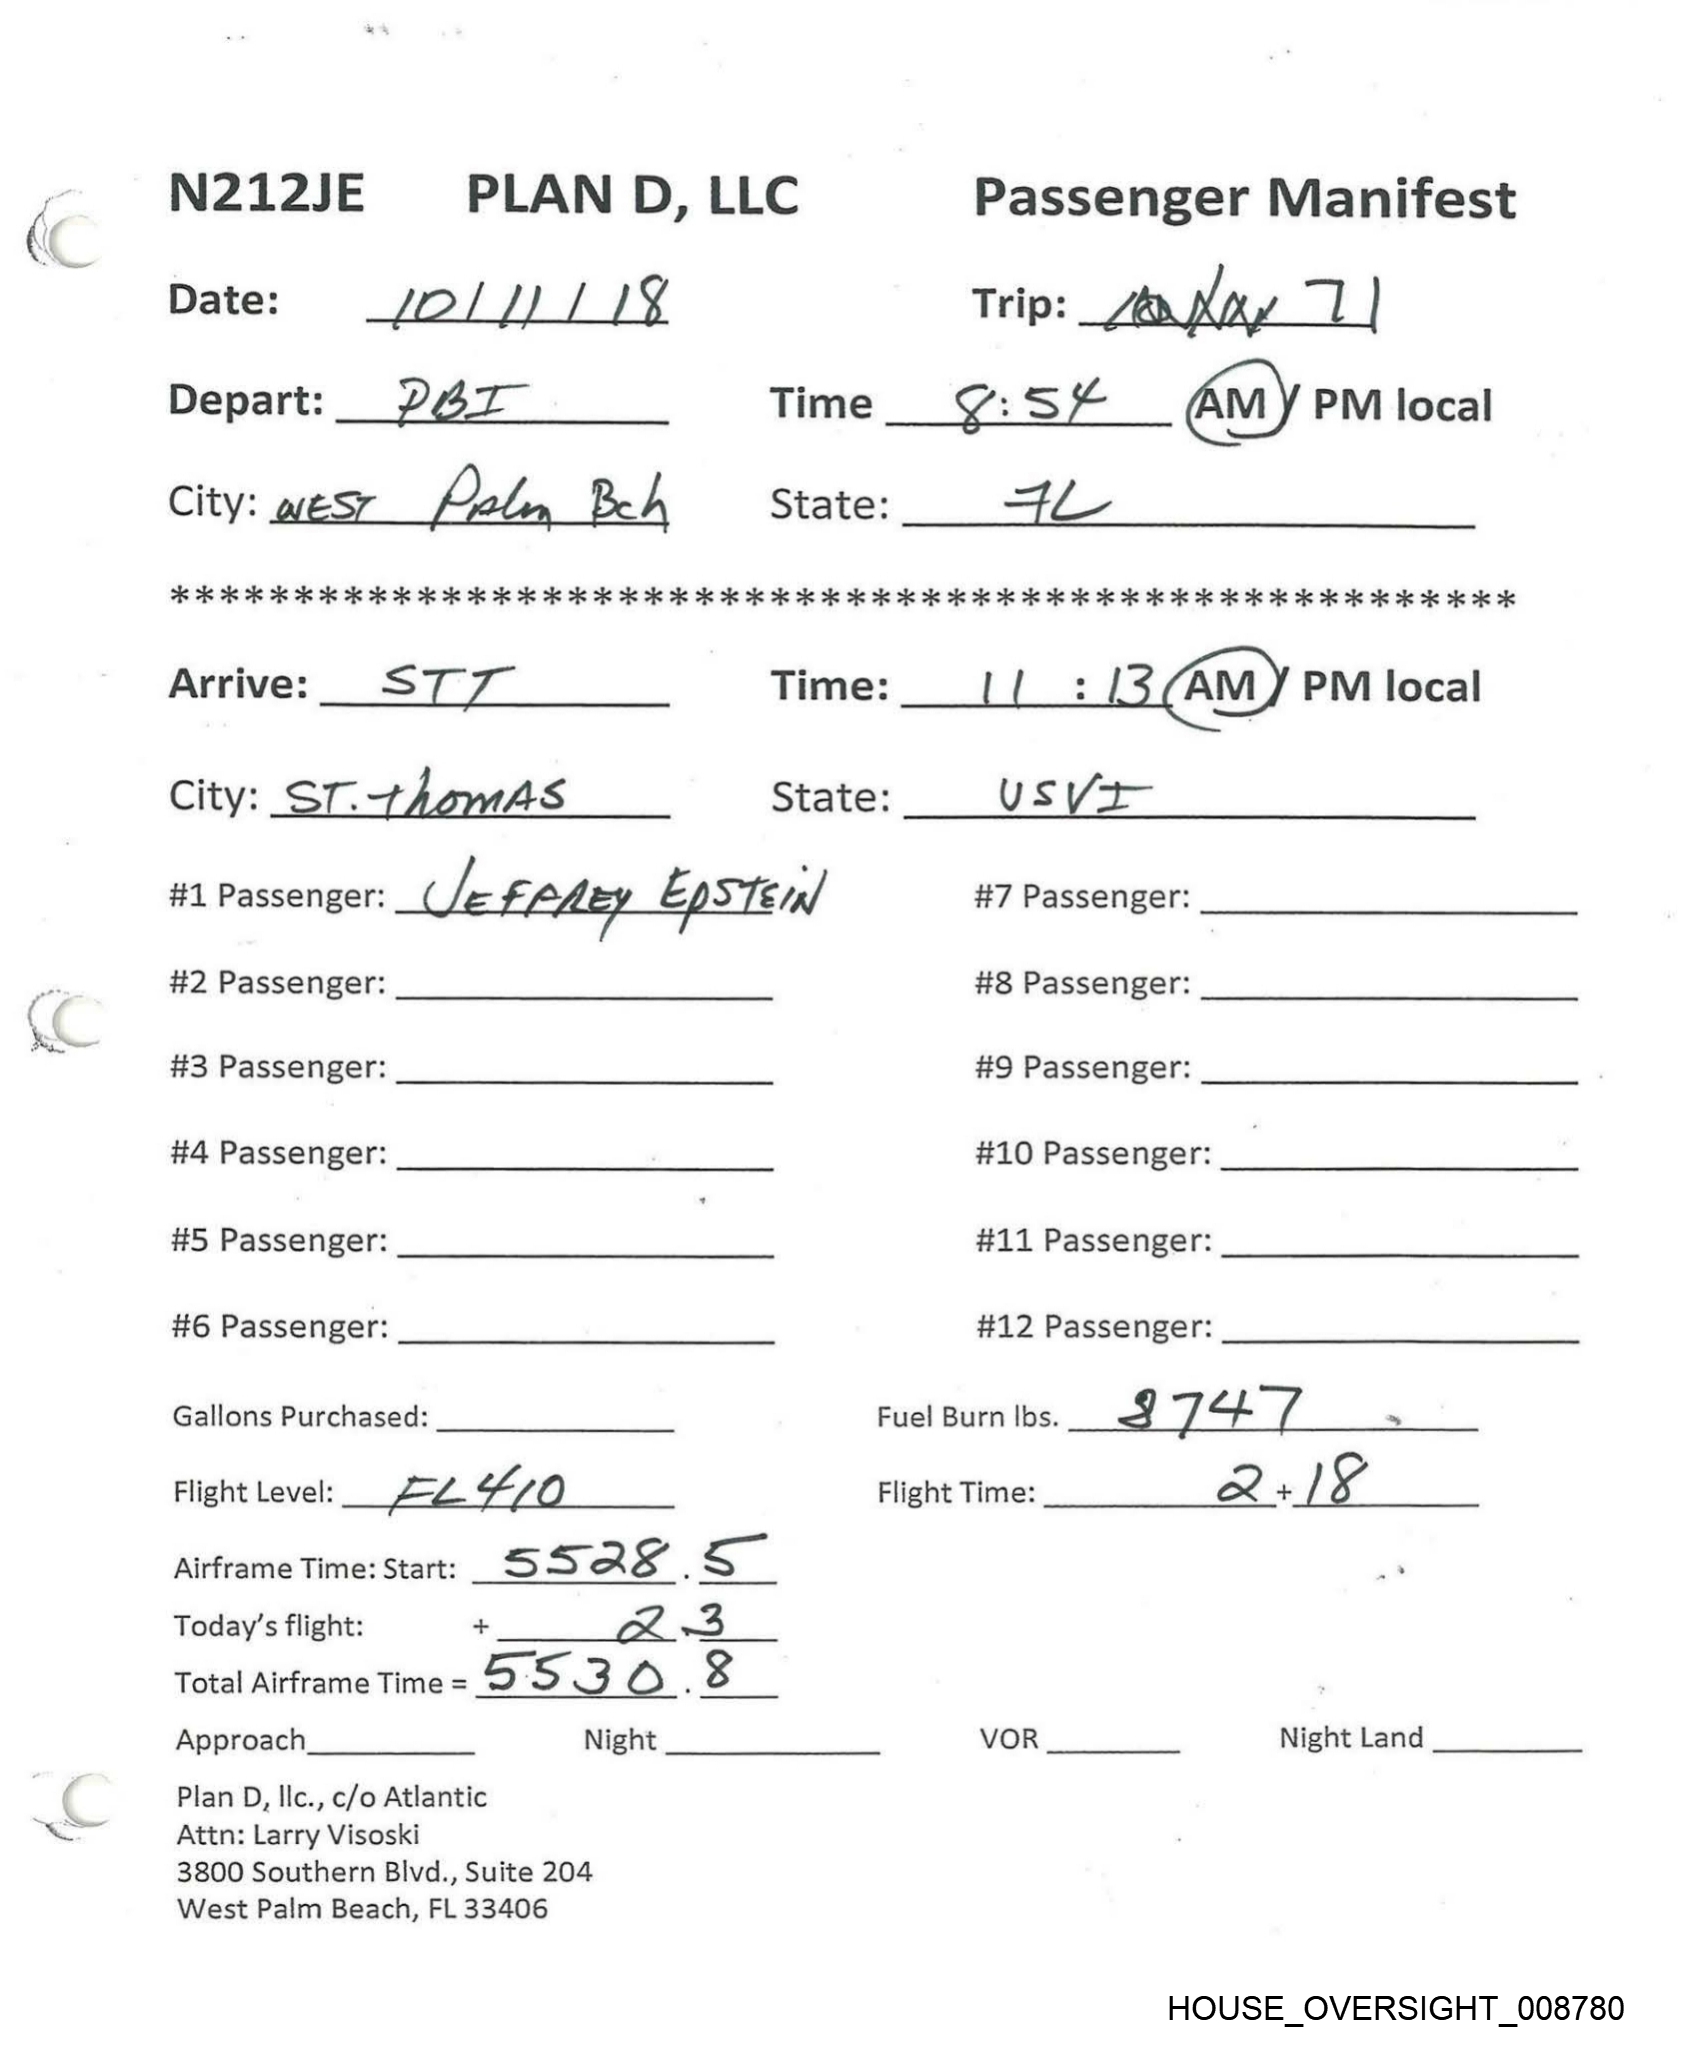 N212JE PLAN D, LLC Passenger Manifest
Date: 10/11/18 Trip: 71
Depart: PBI Time 8:54 AM / PM local
City: WEST Palm Bch State: FL
******************************************************
Arrive: STT Time: 11:13 AM / PM local
City: ST. thomAS State: USVI
#1 Passenger: JEFFREY EpSTEIN #7 Passenger:
#2 Passenger: #8 Passenger:
#3 Passenger: #9 Passenger:
#4 Passenger: #10 Passenger:
#5 Passenger: #11 Passenger:
#6 Passenger: #12 Passenger:
Gallons Purchased: Fuel Burn lbs. 8747
Flight Level: FL410 Flight Time: 2+18
Airframe Time: Start: 5528.5
Today's flight: + 2.3
Total Airframe Time = 5530.8
Approach Night VOR Night Land
Plan D, llc., c/o Atlantic
Attn: Larry Visoski
3800 Southern Blvd., Suite 204
West Palm Beach, FL 33406
HOUSE_OVERSIGHT_008780